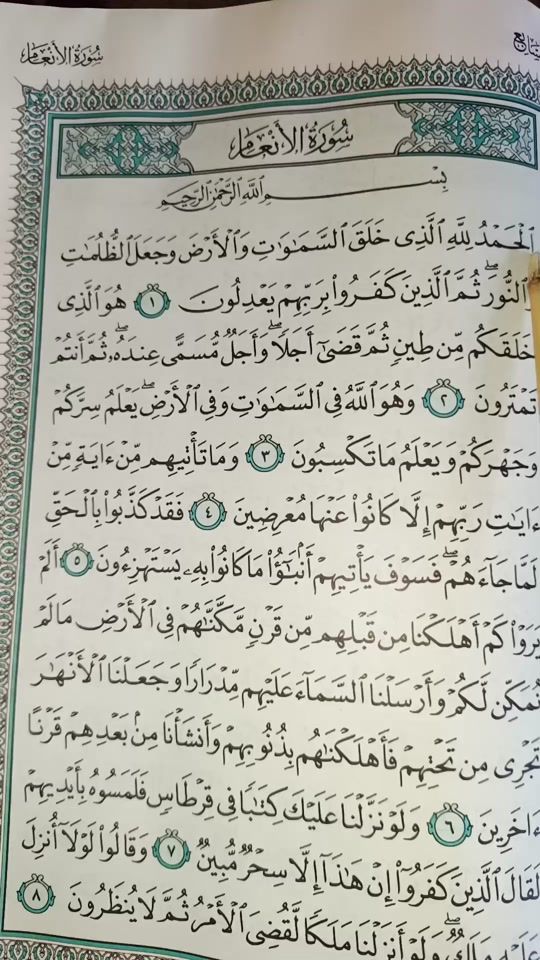 سُورَةُ الأَنْعَام
سُورَةُ الأَنْعَام
بِسْمِ ٱللَّهِ ٱلرَّحْمَٰنِ ٱلرَّحِيمِ
ٱلْحَمْدُ لِلَّهِ ٱلَّذِى خَلَقَ ٱلسَّمَٰوَٰتِ وَٱلْأَرْضَ وَجَعَلَ ٱلظُّلُمَٰتِ
وَٱلنُّورَۖ ثُمَّ ٱلَّذِينَ كَفَرُوا۟ بِرَبِّهِمْ يَعْدِلُونَ ١ هُوَ ٱلَّذِى
خَلَقَكُم مِّن طِينٍ ثُمَّ قَضَىٰٓ أَجَلًاۖ وَأَجَلٌ مُّسَمًّى عِندَهُۥۖ ثُمَّ أَنتُمْ
تَمْتَرُونَ ٢ وَهُوَ ٱللَّهُ فِى ٱلسَّمَٰوَٰتِ وَفِى ٱلْأَرْضِۖ يَعْلَمُ سِرَّكُمْ
وَجَهْرَكُمْ وَيَعْلَمُ مَا تَكْسِبُونَ ٣ وَمَا تَأْتِيهِم مِّنْ ءَايَةٍ مِّنْ
ءَايَٰتِ رَبِّهِمْ إِلَّا كَانُوا۟ عَنْهَا مُعْرِضِينَ ٤ فَقَدْ كَذَّبُوا۟ بِٱلْحَقِّ
لَمَّا جَآءَهُمْۖ فَسَوْفَ يَأْتِيهِمْ أَنۢبَٰٓؤُا۟ مَا كَانُوا۟ بِهِۦ يَسْتَهْزِءُونَ ٥ أَلَمْ
يَرَوْا۟ كَمْ أَهْلَكْنَا مِن قَبْلِهِم مِّن قَرْنٍ مَّكَّنَّٰهُمْ فِى ٱلْأَرْضِ مَا لَمْ
نُمَكِّن لَّكُمْ وَأَرْسَلْنَا ٱلسَّمَآءَ عَلَيْهِم مِّدْرَارًا وَجَعَلْنَا ٱلْأَنْهَٰرَ
تَجْرِى مِن تَحْتِهِمْ فَأَهْلَكْنَٰهُم بِذُنُوبِهِمْ وَأَنشَأْنَا مِنۢ بَعْدِهِمْ قَرْنًا
ءَاخَرِينَ ٦ وَلَوْ نَزَّلْنَا عَلَيْكَ كِتَٰبًا فِى قِرْطَاسٍ فَلَمَسُوهُ بِأَيْدِيهِمْ
لَقَالَ ٱلَّذِينَ كَفَرُوٓا۟ إِنْ هَٰذَآ إِلَّا سِحْرٌ مُّبِينٌ ٧ وَقَالُوا۟ لَوْلَآ أُنزِلَ
عَلَيْهِ مَلَكٌۖ وَلَوْ أَنزَلْنَا مَلَكًا لَّقُضِىَ ٱلْأَمْرُ ثُمَّ لَا يُنظَرُونَ ٨